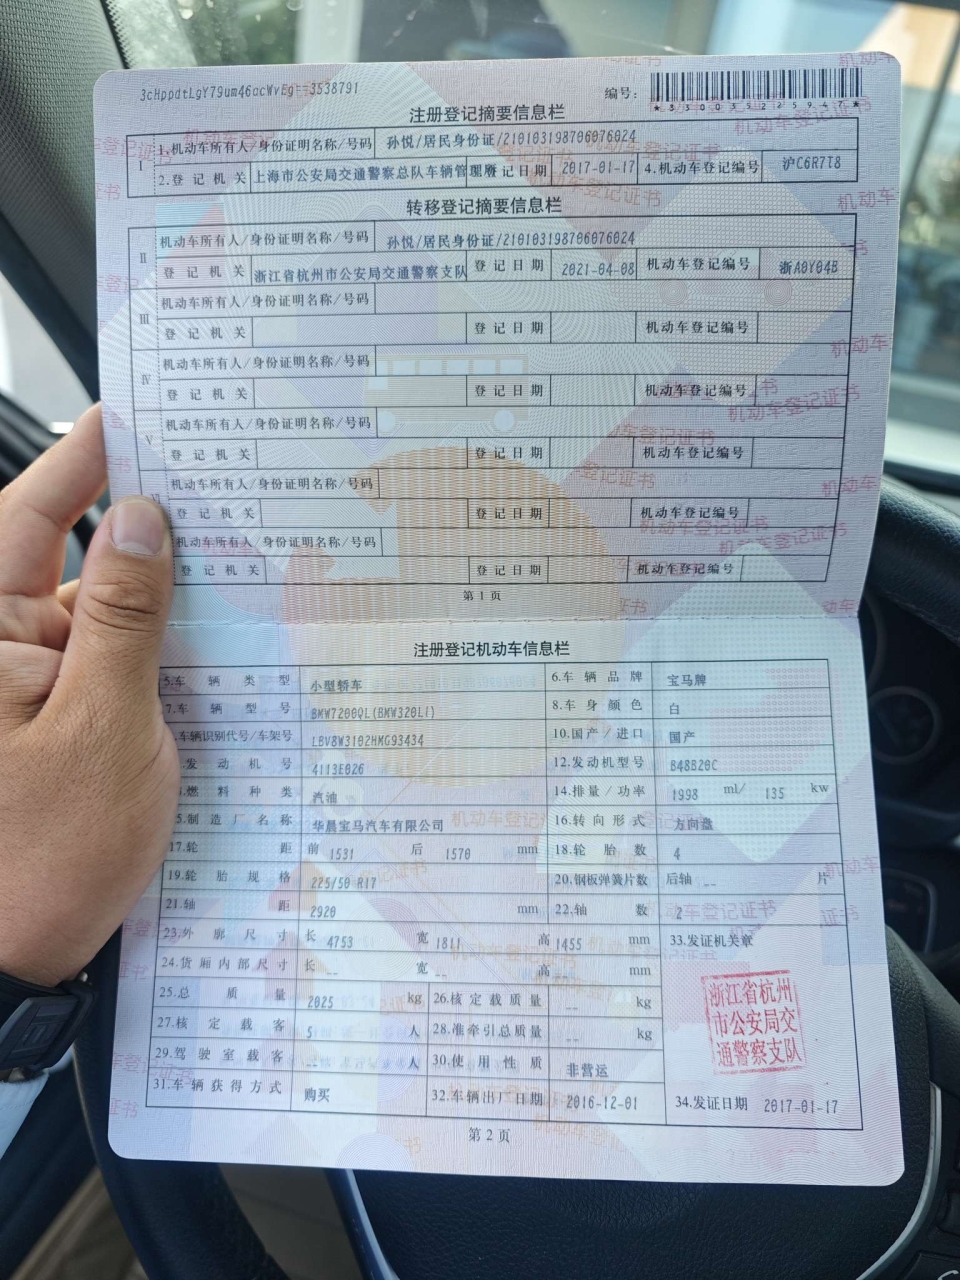 3cHppdtLgY79um46ccWvEg==3538791
编号：
*830039225947*
注册登记摘要信息栏
I 1.机动车所有人/身份证明名称/号码 孙悦/居民身份证/210103198706076024
2.登记机关 上海市公安局交通警察总队车辆管理所 登记日期 2017-01-17 4.机动车登记编号 沪C6R7T8
转移登记摘要信息栏
II 机动车所有人/身份证明名称/号码 孙悦/居民身份证/210103198706076024
登记机关 浙江省杭州市公安局交通警察支队 登记日期 2021-04-08 机动车登记编号 浙A0Y04B
III 机动车所有人/身份证明名称/号码
登记机关 登记日期 机动车登记编号
IV 机动车所有人/身份证明名称/号码
登记机关 登记日期 机动车登记编号
V 机动车所有人/身份证明名称/号码
登记机关 登记日期 机动车登记编号
机动车所有人/身份证明名称/号码
登记机关 登记日期 机动车登记编号
机动车所有人/身份证明名称/号码
登记机关 登记日期 机动车登记编号
第1页
注册登记机动车信息栏
5.车辆类型 小型轿车 6.车辆品牌 宝马牌
7.车辆型号 BMW7200QL(BMW320Li) 8.车身颜色 白
车辆识别代号/车架号 LBV8W3102HMG93434 10.国产/进口 国产
发动机号 4113E026 12.发动机型号 B48B20C
燃料种类 汽油 14.排量/功率 1998 ml/ 135 kw
5.制造厂名称 华晨宝马汽车有限公司 16.转向形式 方向盘
17.轮距 前 1531 后 1570 mm 18.轮胎数 4
19.轮胎规格 225/50 R17 20.钢板弹簧片数 后轴 -- 片
21.轴距 2920 mm 22.轴数 2
23.外廓尺寸 长 4753 宽 1811 高 1455 mm 33.发证机关章
24.货厢内部尺寸 长 -- 宽 -- 高 -- mm
25.总质量 2025 kg 26.核定载质量 -- kg
27.核定载客 5 人 28.准牵引总质量 -- kg
29.驾驶室载客 -- 人 30.使用性质 非营运
31.车辆获得方式 购买 32.车辆出厂日期 2016-12-01 34.发证日期 2017-01-17
浙江省杭州
市公安局交
通警察支队
第2页